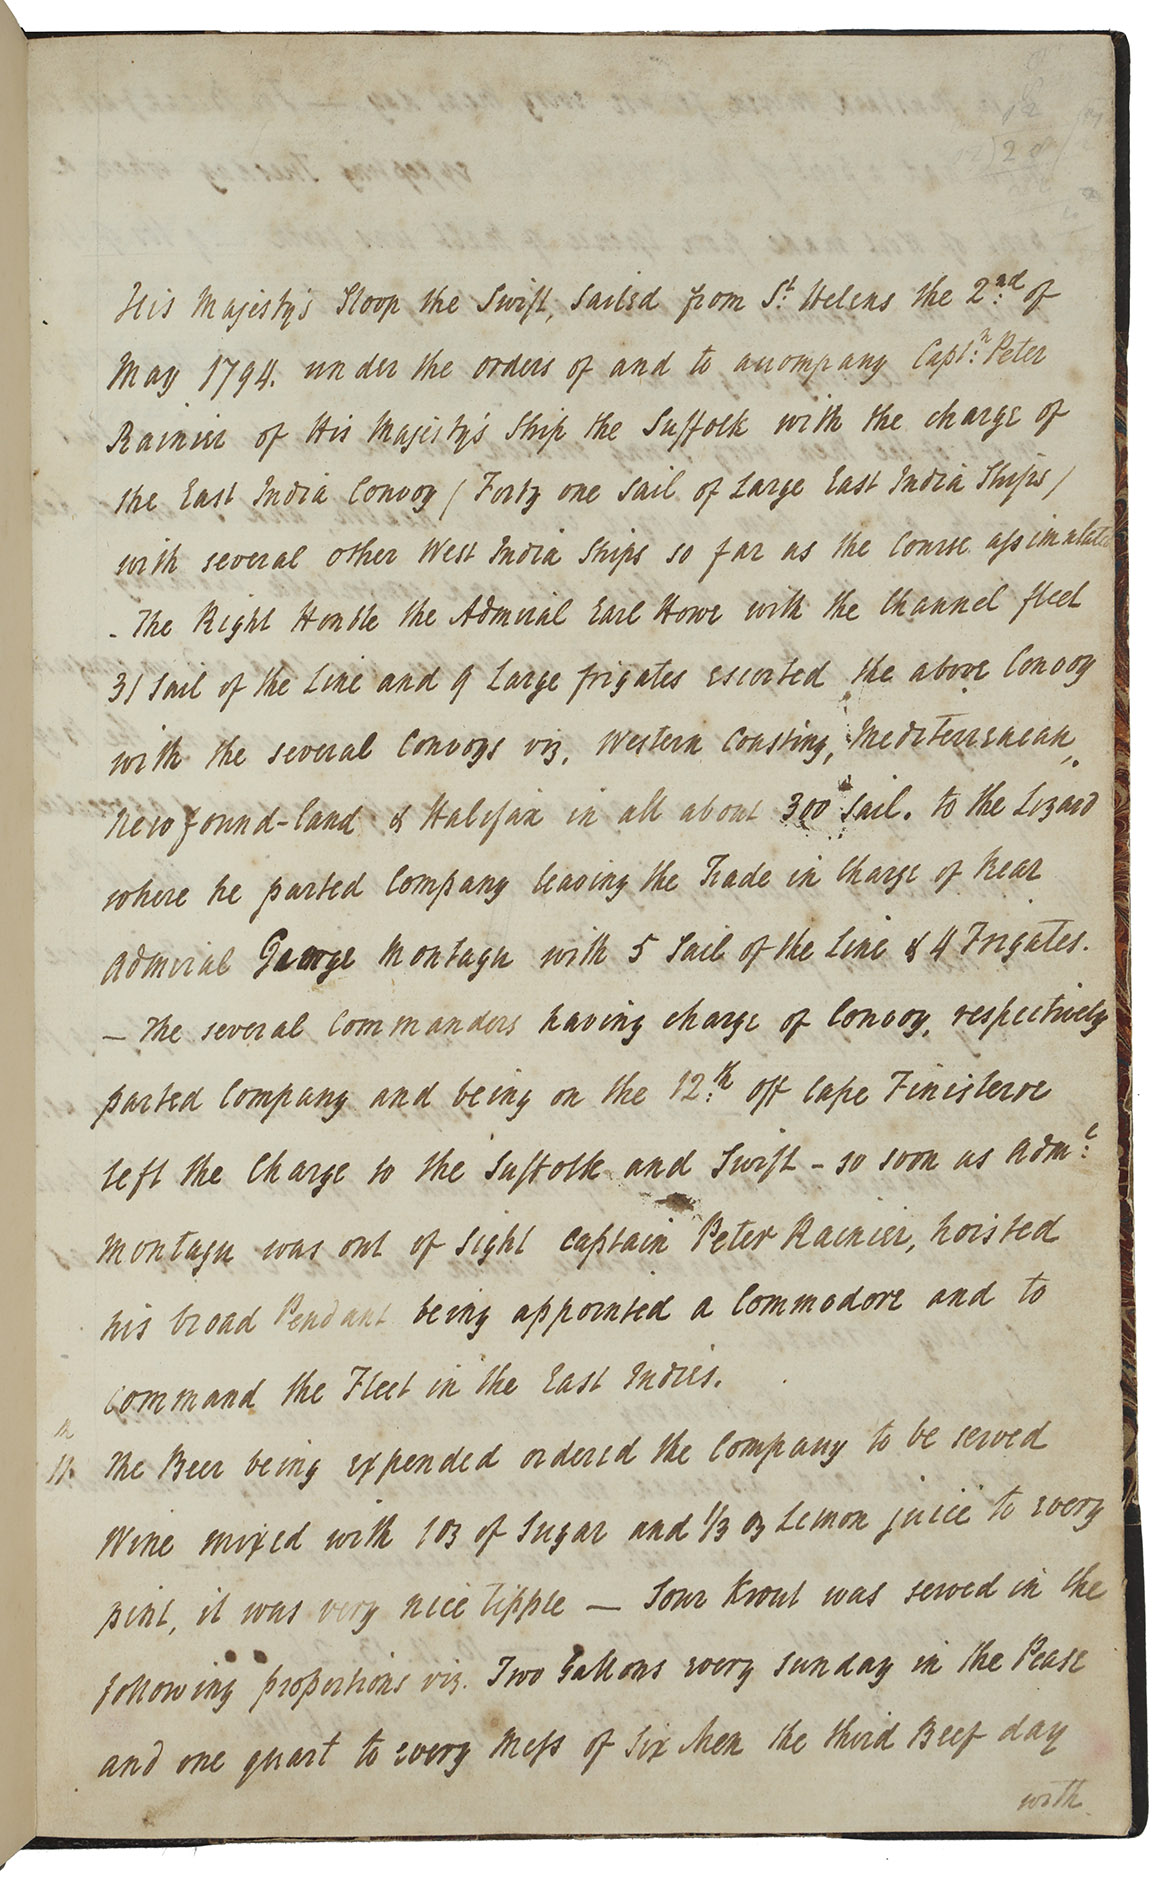 His Majesty's Sloop the Swift, Sailed from St. Helens the 2nd. of
May 1794. under the orders of and to accompany Captn: Peter
Rainier of His Majesty's Ship the Suffolk with the charge of
the East India Convoy / Forty one Sail of Large East India Ships /
with several other West India Ships so far as the Course assimalated
- The Right Honble the Admiral Earl Howe with the Channel fleet
31 Sail of the Line and 9 Large frigates escorted the above Convoy
with the several Convoys viz, Western Coasting, Mediterrenean,
Newfound-land & Halifax in all about 300 Sail. to the Lizard
where he parted Company leaving the Trade in Charge of Rear
Admiral George Montagu with 5 Sail of the Line & 4 Frigates.
— The several Commanders having charge of Convoy, respectively
parted Company and being on the 12:th off Cape Finisterre
left the Charge to the Suffolk and Swift - so soon as Adm:l
Montagu was out of sight Captain Peter Rainier, hoisted
his broad Pendant being appointed a Commodore and to
command the Fleet in the East Indies.
The Beer being expended ordered the Company to be served
Wine mixed with 1 oz of Sugar and 1/3 oz Lemon juice to every
pint, it was very nice tipple — Sour Krout was served in the
following proportions viz. Two Gallons every sunday in the Pease
and one quart to every Mess of Six Men the third Beef day
with